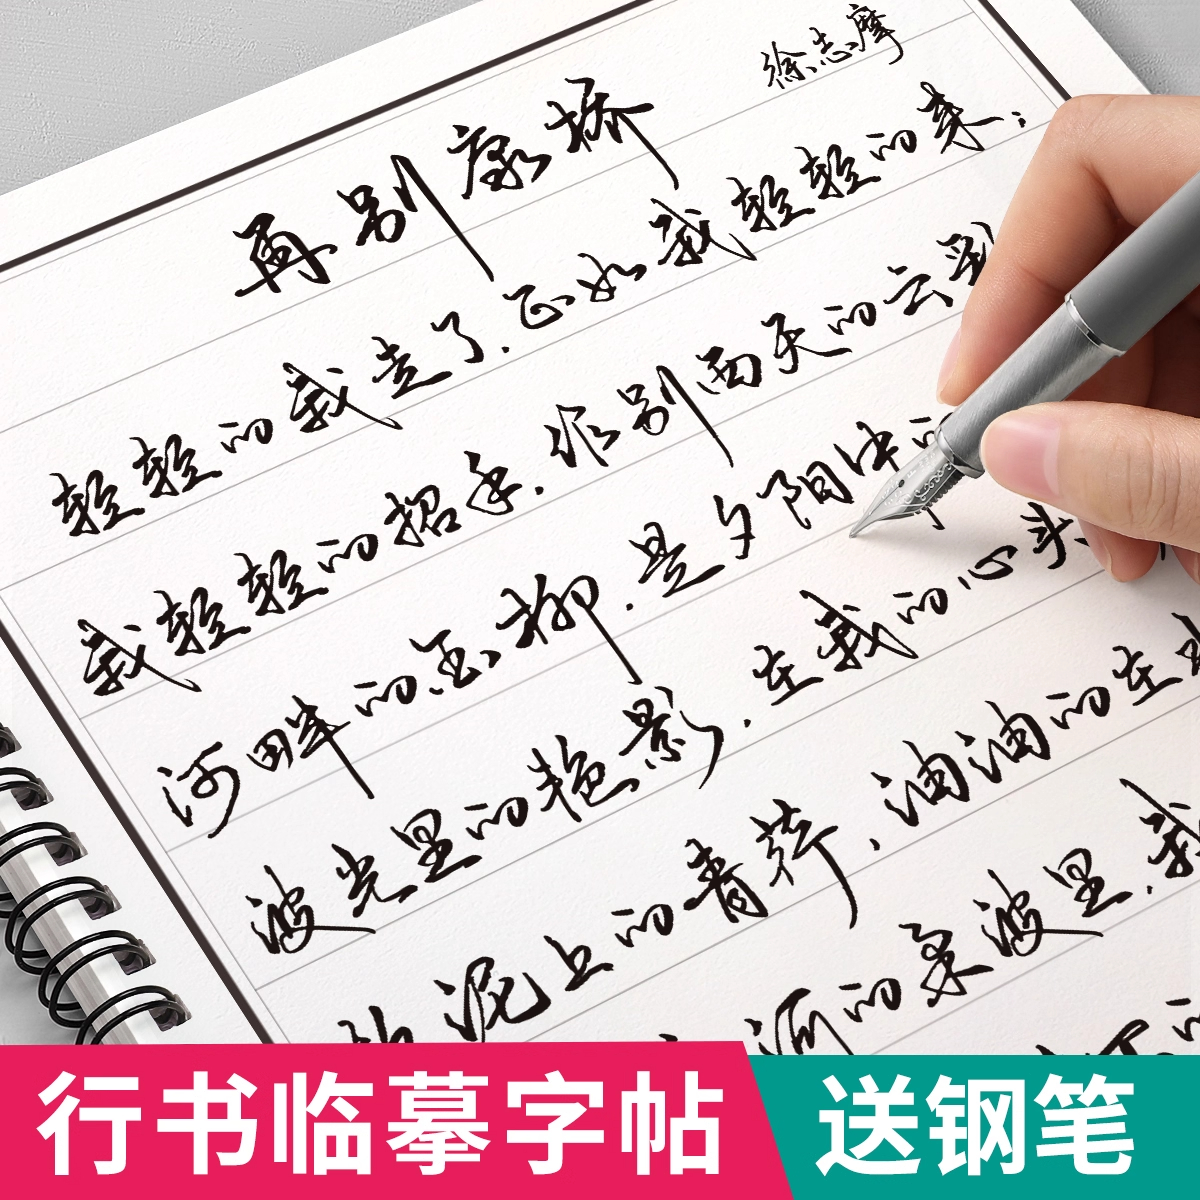 徐志摩
再别康桥
轻轻的我走了,正如我轻轻的来;
我轻轻的招手,作别西天的云
河畔的金柳,是夕阳中
波光里的艳影,在我的心头
泥上的青荇,油油的在
河的柔波里,我
行书临摹字帖
送钢笔